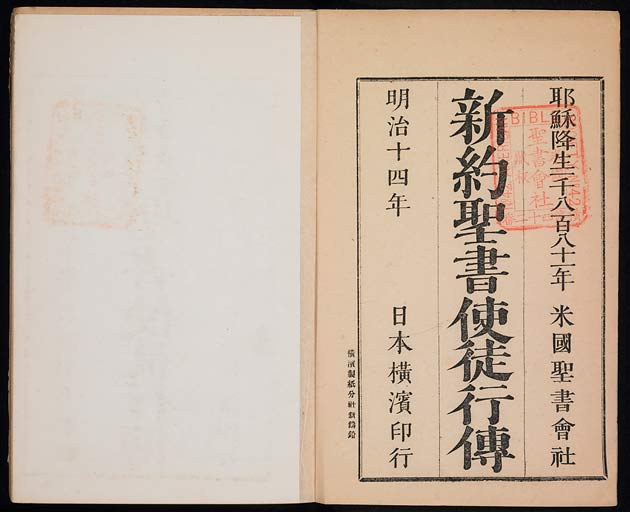 耶穌降生一千八百八十一年 米國聖書會社
新約聖書使徒行傳
明治十四年 日本橫濱印行
橫濱製紙分社
BIBL
聖書會社